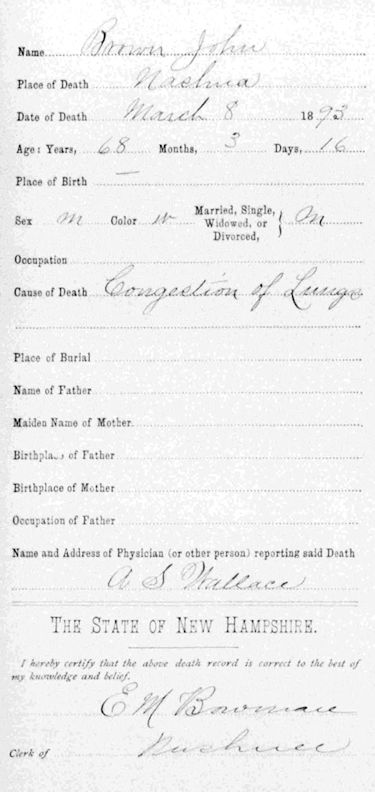 Name Brown John
Place of Death Nashua
Date of Death March 8 1893
Age: Years, 68 Months, 3 Days, 16
Place of Birth —
Sex M Color W Married, Single, Widowed, or Divorced, } M
Occupation
Cause of Death Congestion of Lungs
Place of Burial
Name of Father
Maiden Name of Mother
Birthplace of Father
Birthplace of Mother
Occupation of Father
Name and Address of Physician (or other person) reporting said Death
A S Wallace
THE STATE OF NEW HAMPSHIRE.
I hereby certify that the above death record is correct to the best of
my knowledge and belief.
E M Bowman
Clerk of